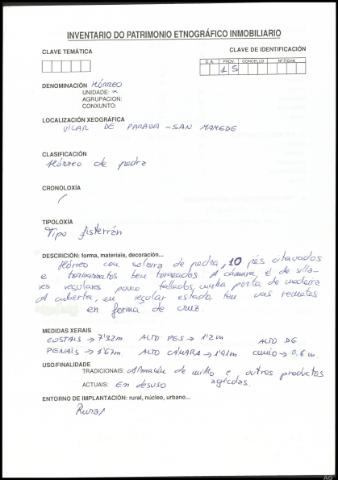 INVENTARIO DO PATRIMONIO ETNOGRÁFICO INMOBILIARIO
CLAVE TEMÁTICA
CLAVE DE IDENTIFICACIÓN
D.A. PROV. CONCELLO Nº FICHA
15
DENOMINACIÓN HÓRREO
UNIDADE: x
AGRUPACION:
CONXUNTO:
LOCALIZACIÓN XEOGRÁFICA
VILAR DE PARADA - SAN MAMEDE
CLASIFICACIÓN
Hórreo de pedra
CRONOLOXÍA
/
TIPOLOXÍA
Tipo fisterrán
DESCRICIÓN: forma, materiais, decoración...
Hórreo con soleira de pedra, 10 pés chavados
e tornarratos ben torneados. A cámara é de silla-
res regulares pouco tallados, unha porta de madeira
A cuberta, en regular estado ten uns remates
en forma de cruz.
MEDIDAS XERAIS
COSTAIS → 7'32m ALTO PES → 1'2m ALTO DE
PENAIS → 1'67m ALTO CÁMARA → 1'41m CUMIO → 0,6m
USO/FINALIDADE
TRADICIONAIS: Almacén de millo e outros productos
agrícolas.
ACTUAIS: En desuso
ENTORNO DE IMPLANTACIÓN: rural, núcleo, urbano...
Rural